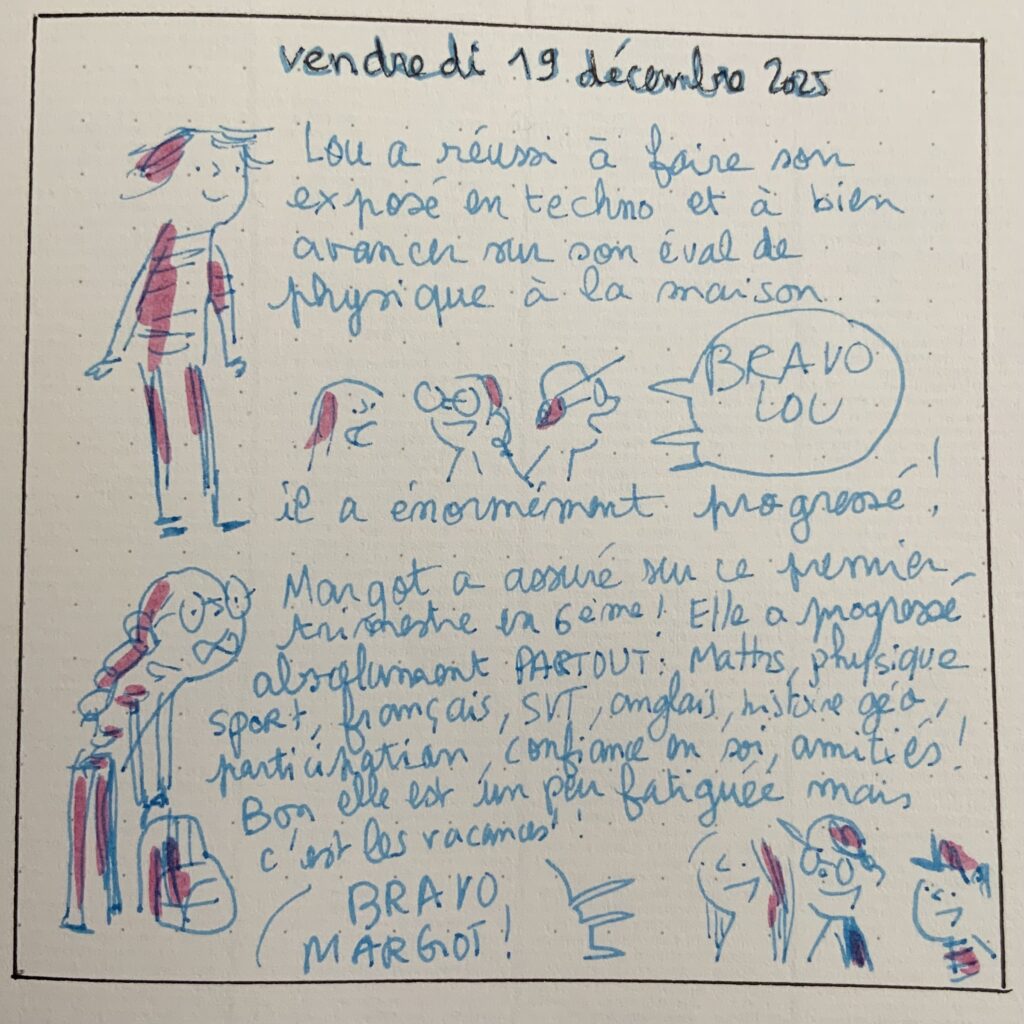 vendredi 19 décembre 2025
Lou a réussi à faire son
exposé en techno et à bien
avancer sur son éval de
physique à la maison.
BRAVO
LOU
il a énormément progressé !
Margot a assuré sur ce premier
trimestre en 6ème ! Elle a progressé
absolument PARTOUT : Maths, physique
sport, français, SVT, anglais, histoire géo,
participation, confiance en soi, amitiés !
Bon elle est un peu fatiguée mais
c'est les vacances !
BRAVO
MARGOT !